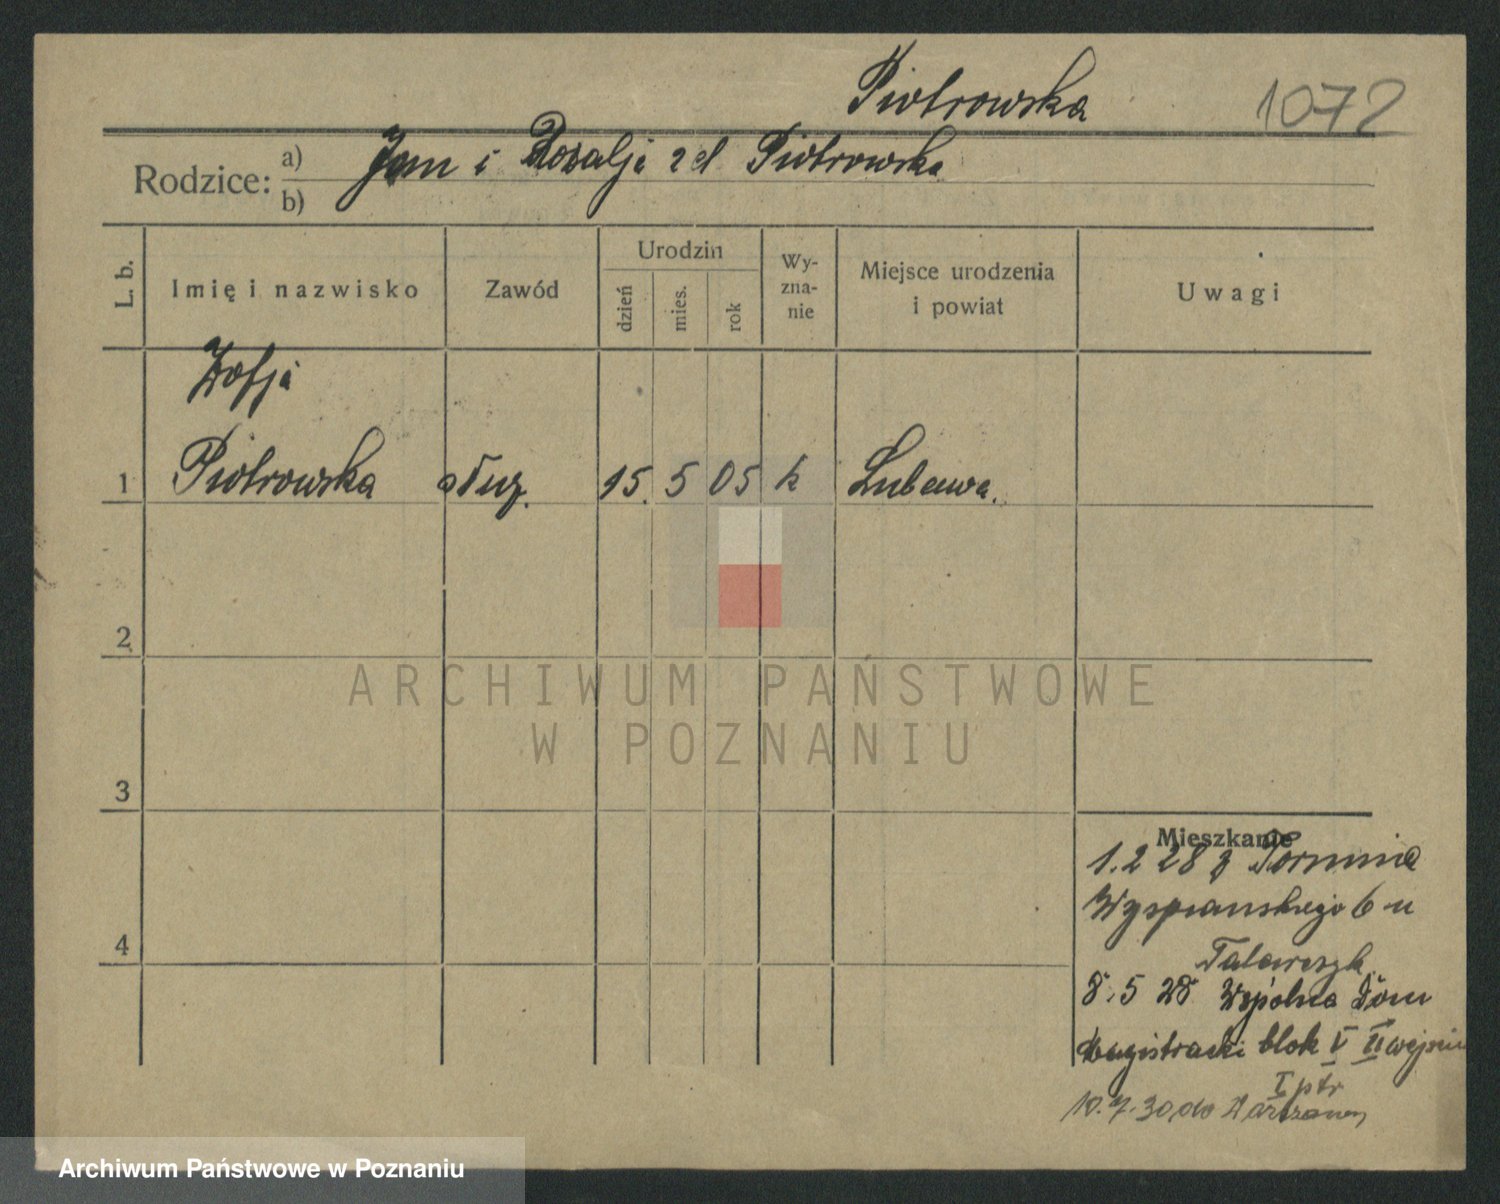 Piotrowska 1072
Rodzice: a) Jan i Rozalja zd Piotrowska
b)
L. b. Imię i nazwisko Zawód Urodzin dzień mies. rok Wy-zna-nie Miejsce urodzenia i powiat Uwagi
Zofja
1 Piotrowska służ. 15. 5 05 k Lubawa.
2
3
4
Mieszkanie
1.2 28 z Torunia
Wyspianskiego 6 u
8.5 28 Wspolna Dom
Magistracki blok V II wejscie
I ptr
10.7.30 do Warszawy
ARCHIWUM PAŃSTWOWE
W POZNANIU
Archiwum Państwowe w Poznaniu